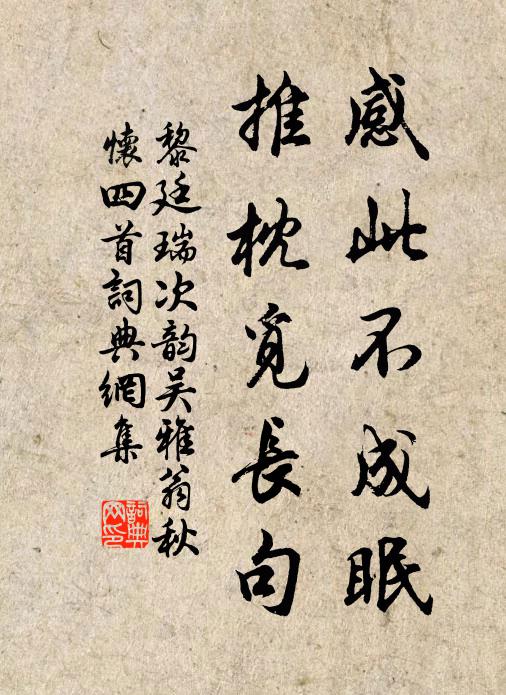 感此不成眠
推枕觅長句
黎廷瑞次韵吴雅翁秋
懷四首詞典網集
詞典
网印